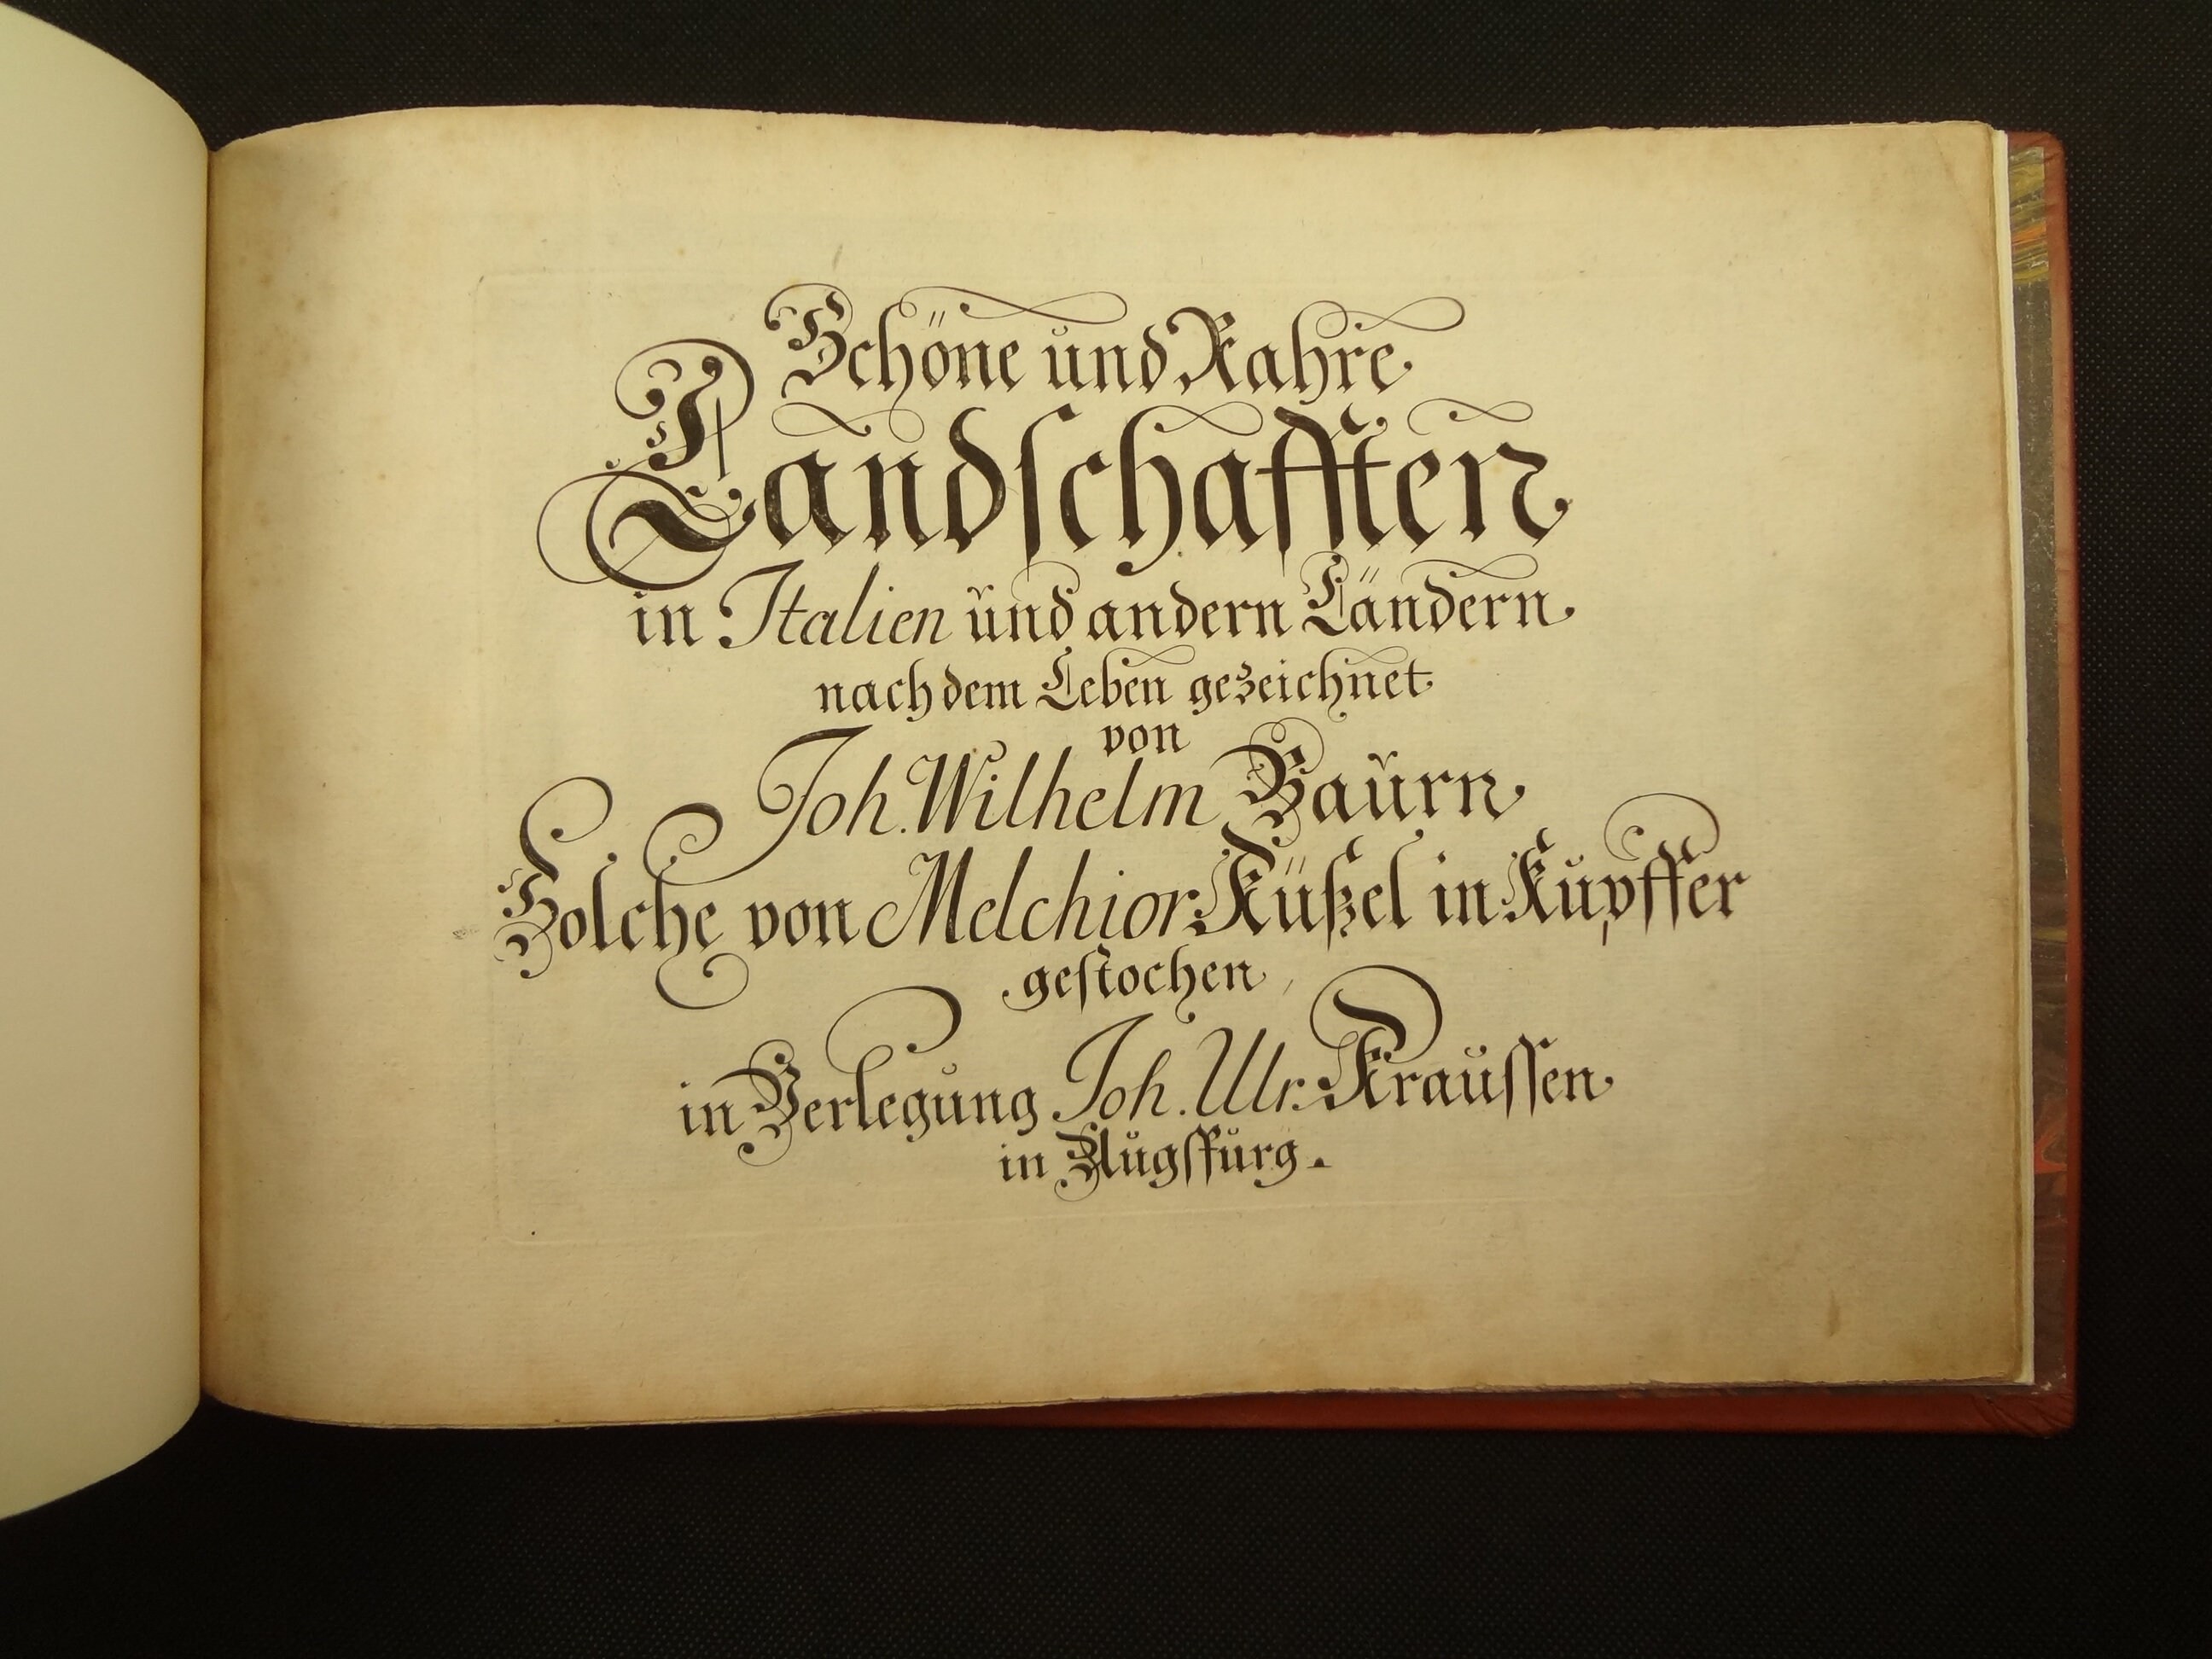 Schöne und Rahre
Landschafften
in Italien und andern Ländern
nach dem Leben gezeichnet
von
Joh. Wilhelm Baurn
Solche von Melchior Küßel in Kupffer
gestochen,
in Verlegung Joh. Ulr. Kraussen
in Augspurg.